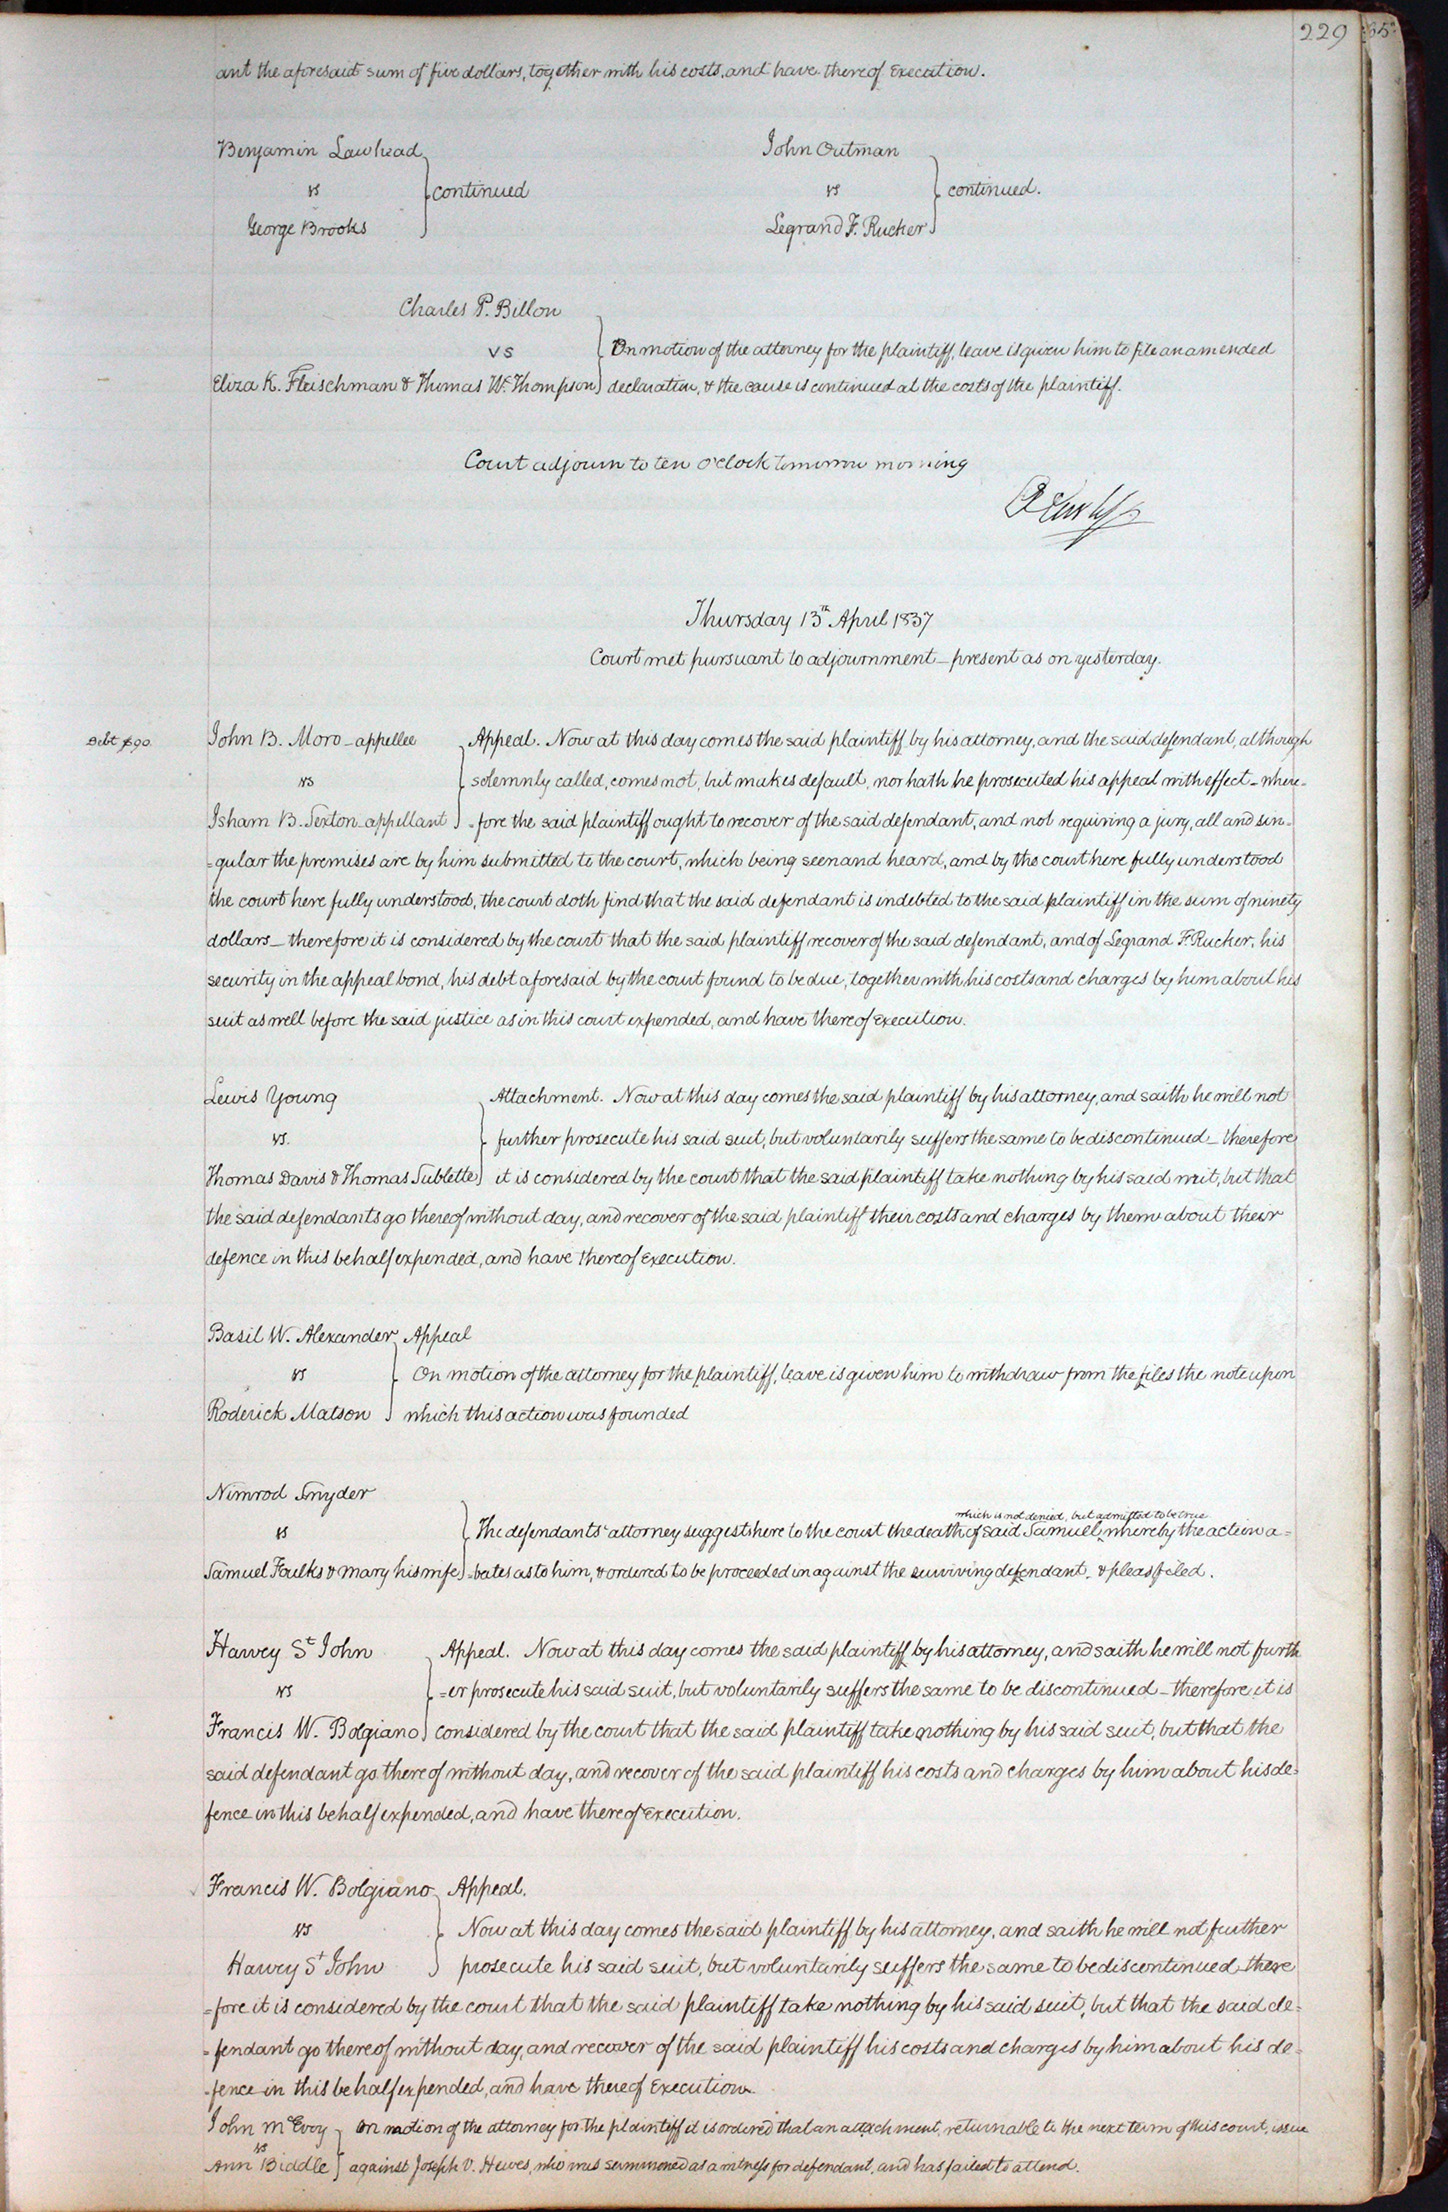 229
ant the aforesaid sum of five dollars, together with his costs, and have thereof Execution.
Benjamin Lawhead
vs
George Brooks
continued
John Outman
vs
Legrand F. Rucker
continued.
Charles P. Billon
vs
Eliza K. Fleischman & Thomas W. Thompson
On motion of the attorney for the plaintiff, leave is given him to file an amended
declaration, & the cause is continued at the costs of the plaintiff.
Court adjourn to ten o'clock tomorrow morning
Thursday 13th April 1837
Court met pursuant to adjournment_ present as on yesterday.
Debt $90.
John B. Moro_appellee
vs
Isham B. Sexton_appellant
Appeal. Now at this day comes the said plaintiff by his attorney, and the said defendant, although
solemnly called, comes not, but makes default, nor hath he prosecuted his appeal with effect_ where=
=fore the said plaintiff ought to recover of the said defendant, and not requiring a jury, all and sin=
=gular the premises are by him submitted to the court, which being seen and heard, and by the court here fully understood
the court here fully understood, the court doth find that the said defendant is indebted to the said plaintiff in the sum of ninety
dollars_ therefore it is considered by the court that the said plaintiff recover of the said defendant, and of Legrand F. Rucker, his
security in the appeal bond, his debt aforesaid by the court found to be due, together with his costs and charges by him about his
suit as well before the said justice as in this court expended, and have thereof Execution.
Lewis Young
vs.
Thomas Davis & Thomas Sublette
Attachment. Now at this day comes the said plaintiff by his attorney, and saith he will not
further prosecute his said suit, but voluntarily suffers the same to be discontinued_ therefore
it is considered by the court that the said plaintiff take nothing by his said writ, but that
the said defendants go thereof without day, and recover of the said plaintiff their costs and charges by them about their
defence in this behalf expended, and have thereof Execution.
Basil W. Alexander
vs
Roderick Matson
Appeal
On motion of the attorney for the plaintiff, leave is given him to withdraw from the files the note upon
which this action was founded
Nimrod Snyder
vs
Samuel Foulks & Mary his wife
which is not denied, but admitted to be true
The defendants' attorney suggests here to the court the death of said Samuel, whereby the action a=
=bates as to him, & ordered to be proceeded in against the surviving defendant_ & pleas filed.
Harvey St John
vs
Francis W. Bolgiano
Appeal. Now at this day comes the said plaintiff by his attorney, and saith he will not furth
=er prosecute his said suit, but voluntarily suffers the same to be discontinued_ therefore it is
considered by the court that the said plaintiff take nothing by his said suit, but that the
said defendant go thereof without day, and recover of the said plaintiff his costs and charges by him about his de=
fence in this behalf expended, and have thereof Execution.
Francis W. Bolgiano
vs
Harvey St John
Appeal.
Now at this day comes the said plaintiff by his attorney, and saith he will not further
prosecute his said suit, but voluntarily suffers the same to be discontinued_ there
=fore it is considered by the court that the said plaintiff take nothing by his said suit, but that the said de=
=fendant go thereof without day, and recover of the said plaintiff his costs and charges by him about his de=
=fence in this behalf expended, and have thereof Execution.
John McEvoy
vs
Ann Biddle
On motion of the attorney for the plaintiff it is ordered that an attachment, returnable to the next term of this court, issue
against Joseph V. Hewes, who was summoned as a witness for defendant, and has failed to attend.